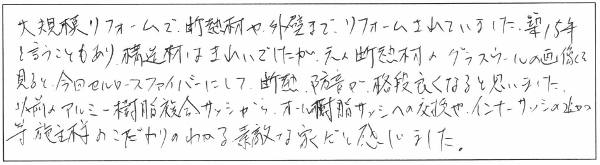 大規模リフォームで、断熱材や、外壁まで、リフォームされていました。築15年
と言うこともあり、構造材はきれいでしたが、元の断熱材のグラスウールの画像を
見ると、今回セルロースファイバーにして、断熱、防音が、格段良くなると思いました。
以前のアルミー樹脂複合サッシから、オール樹脂サッシへの交換や、インナーサッシの追加
等施主様のこだわりのわかる素敵な家だと感じました。